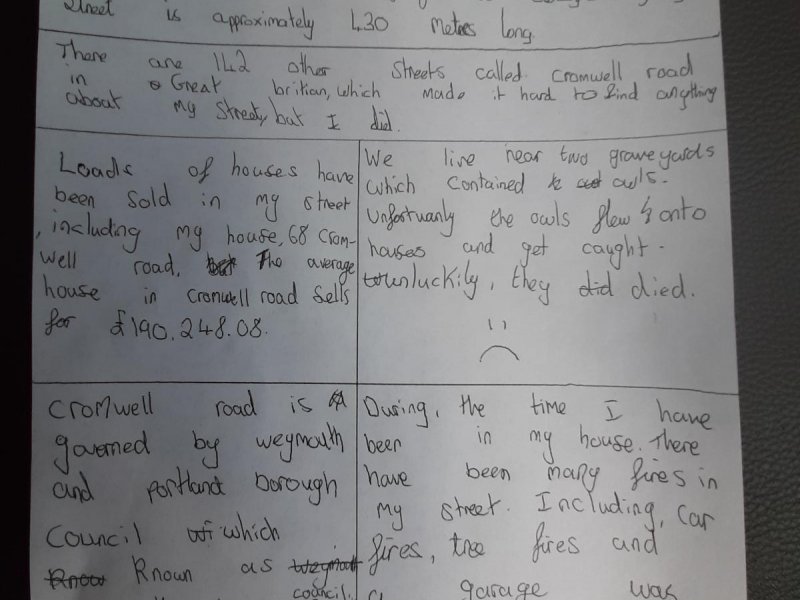 Street is approximately 430 Metres long
There are 142 other streets called Cromwell road
in Great britian, which made it hard to find anything
about my street, but I did.
Loads of houses have
been sold in my street
, including my house, 68 Crom-
well road, The average
house in cromwell road sells
for £190.248.08.
We live near two graveyards
which contained owls.
Unfortuanly the owls flew onto
houses and get caught.
unluckily, they did died.
cromwell road is
governed by weymouth
and portland borough
council which
Known as
council,
During, the time I have
been in my house. There
have been many fires in
my street. Including, car
fires, tree fires and
a garage was